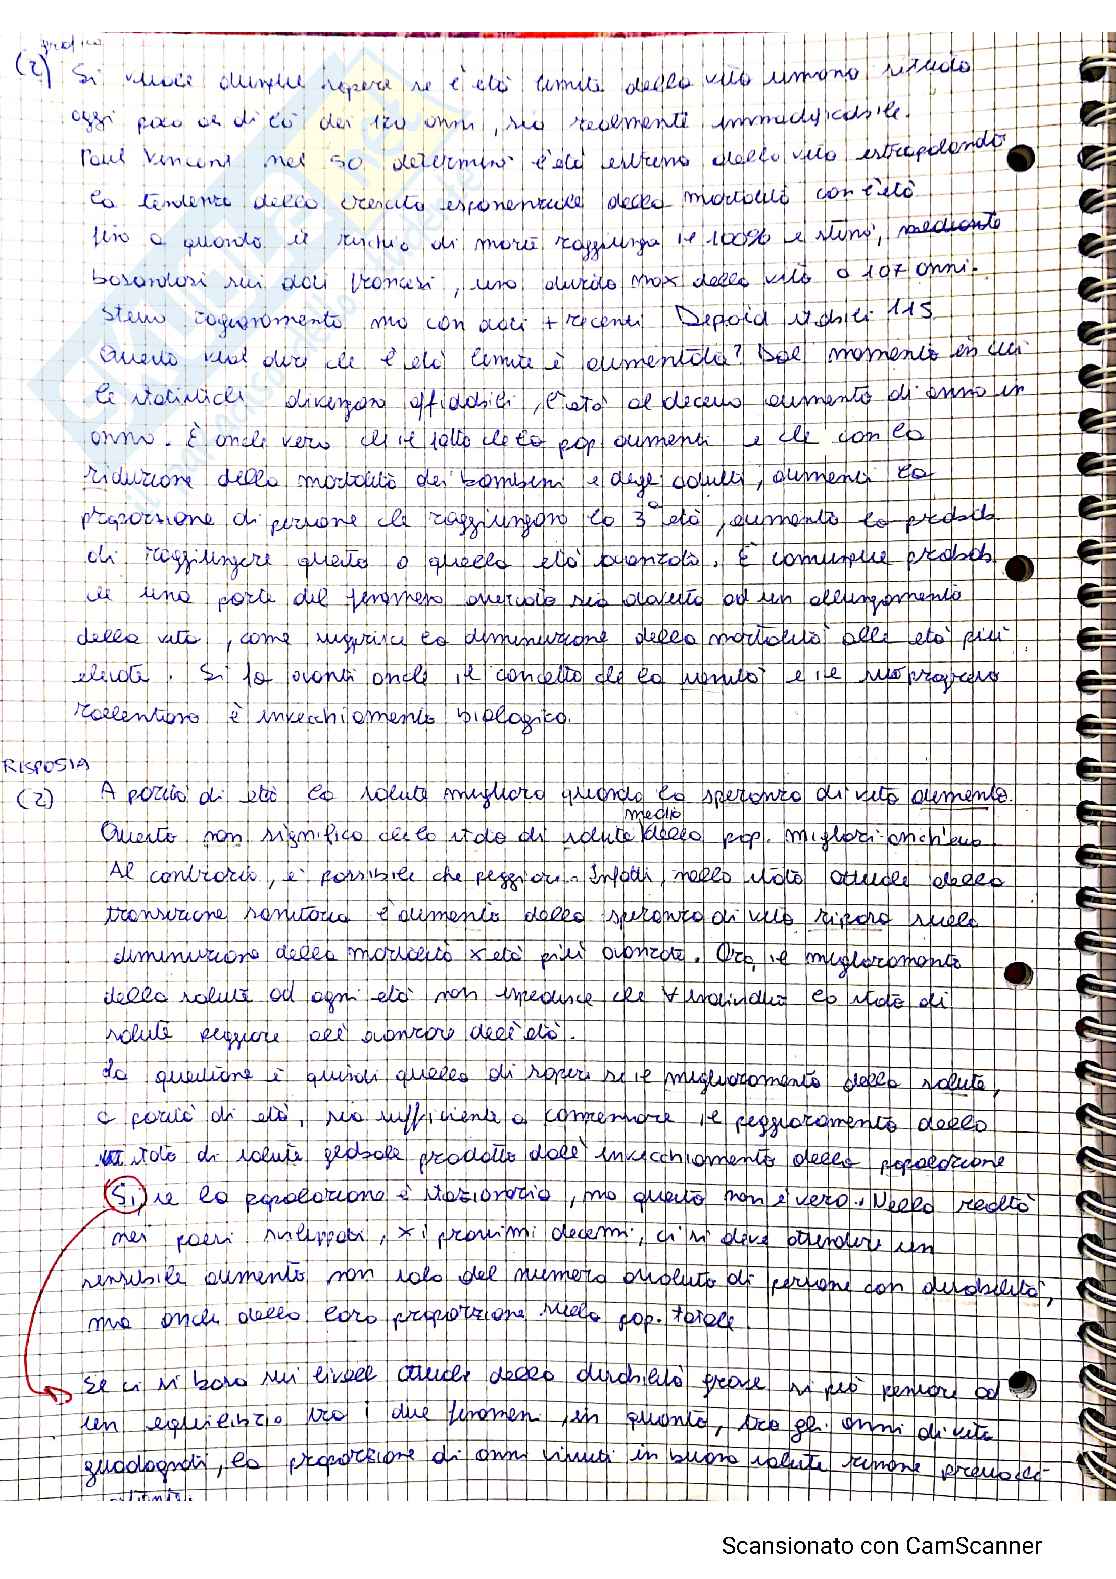 grafico
(2) Si vuole dunque sapere se l'età limite della vita umana situata
oggi poco al di là dei 120 anni, sia realmente immodificabile.
Paul Vincent nel 50 determinò l'età estrema della vita estrapolando
la tendenza della crescita esponenziale della mortalità con l'età
fino a quando il rischio di morte raggiunga il 100% e stimò, mediante
basandosi sui dati francesi, una durata max della vita a 107 anni.
Stesso ragionamento ma con dati + recenti Depoid stabilì 115
Questo vuol dire che l'età limite è aumentata? Dal momento in cui
le statistiche divengono affidabili, l'età al decesso aumenta di anno in
anno. È anche vero che il fatto che la pop aumenti e che con la
riduzione della mortalità dei bambini e degli adulti, aumenti la
proporzione di persone che raggiungono la 3ª età, aumenta la probab.
di raggiungere questa o quella età avanzata. È comunque probab.
che una parte del fenomeno osservato sia dovuto ad un allungamento
della vita, come suggerisce la diminuzione della mortalità alle età più
elevate. Si fa avanti anche il concetto che la sanità e il suo progresso
rallentano l'invecchiamento biologico.
RISPOSTA
(2) A parità di età la salute migliora quando la speranza di vita aumenta.
medio
Questo non significa che lo stato di salute della pop. migliori anch'esso
Al contrario, è possibile che peggiori. Infatti, nello stato attuale della
transizione sanitaria l'aumento della speranza di vita riposa sulla
diminuzione della mortalità x età più avanzate. Ora, il miglioramento
della salute ad ogni età non impedisce che ∀ individuo lo stato di
salute peggiore all'avanzare dell'età.
La questione è quindi quella di sapere se il miglioramento della salute,
a parità di età, sia sufficiente a compensare il peggioramento dello
stato di salute globale prodotto dall'invecchiamento della popolazione
Sì, se la popolazione è stazionaria, ma questo non è vero. Nella realtà
nei paesi sviluppati, x i prossimi decenni, ci si deve attendere un
sensibile aumento non solo del numero assoluto di persone con disabilità,
ma anche della loro proporzione sulla pop. totale
Se ci si basa sui livelli attuali della disabilità grave si può pensare ad
un equilibrio tra i due fenomeni, in quanto, tra gli anni di vita
guadagnati, la proporzione di anni vissuti in buona salute rimane
Scansionato con CamScanner